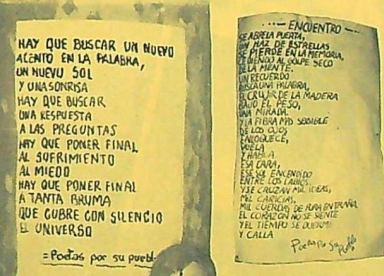 HAY QUE BUSCAR UN NUEVO
ACENTO EN LA PALABRA,
UN NUEVO SOL
Y UNA SONRISA
HAY QUE BUSCAR
UNA RESPUESTA
A LAS PREGUNTAS
HAY QUE PONER FINAL
AL SUFRIMIENTO
AL MIEDO
HAY QUE PONER FINAL
A TANTA BRUMA
QUE CUBRE CON SILENCIO
EL UNIVERSO
=Poetas por su puebl
--- ENCUENTRO ---
SE ABRE LA PUERTA,
UN HAZ DE ESTRELLAS
SE PIERDE EN LA MEMORIA,
AL GOLPE SECO
DE LA MENTE.
UN RECUERDO
BUSCA UNA PALABRA,
EL CRUJIR DE LA MADERA
BAJO EL PESO,
UNA MIRADA.
Y LA FIBRA MAS SENSIBLE
DE LOS OJOS
ENLOQUECE,
VUELA
Y HABLA
ESA CARA,
ESE SOL ENCENDIDO
ENTRE LOS LABIOS.
Y SE CRUZAN MIL IDEAS,
MIL CARICIAS,
MIL CUERDAS DE PURA ENTRAÑA,
EL CORAZON NO SE SIENTE
Y EL TIEMPO SE DUERME
Y CALLA
Poetas Por Su Pueblo